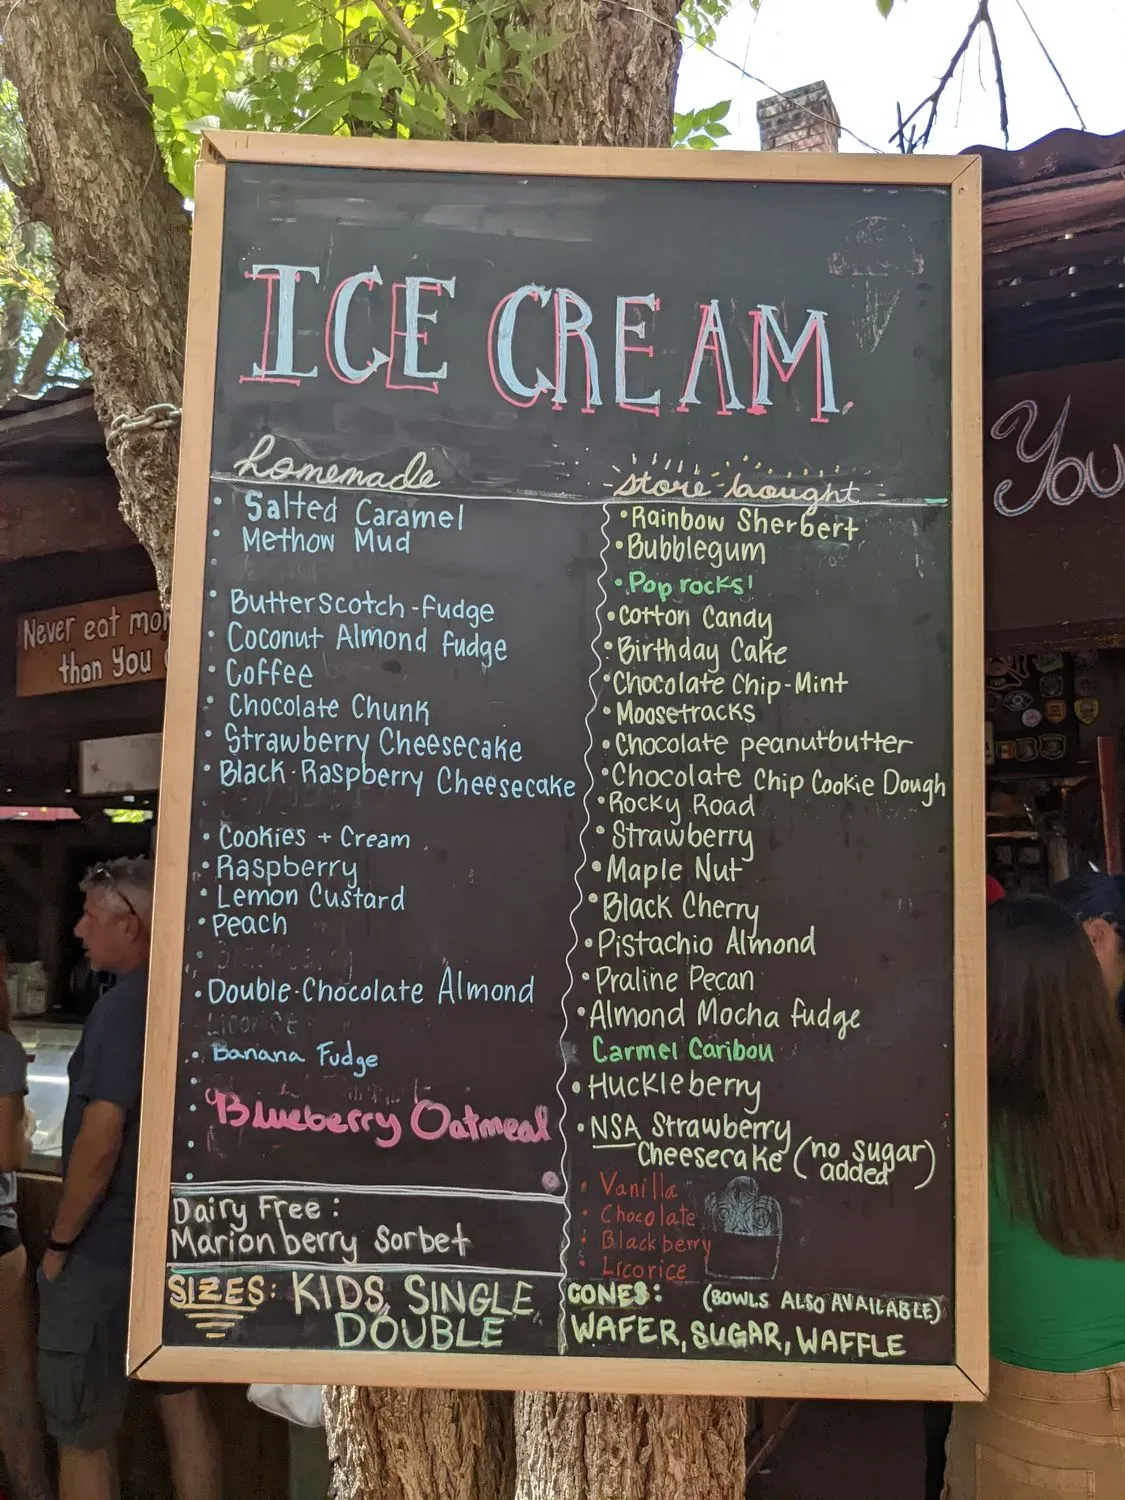 ICE CREAM
homemade
• Salted Caramel
• Methow Mud
• Butterscotch-fudge
• Coconut Almond fudge
• Coffee
• Chocolate Chunk
• Strawberry Cheesecake
• Black-Raspberry Cheesecake
• Cookies + Cream
• Raspberry
• Lemon Custard
• Peach
• Double-Chocolate Almond
Licorice
• Banana Fudge
• Blueberry Oatmeal
Dairy Free:
Marionberry Sorbet
SIZES: KIDS, SINGLE
DOUBLE
store bought
• Rainbow Sherbert
• Bubblegum
• Pop rocks!
• Cotton Candy
• Birthday Cake
• Chocolate Chip-Mint
• Moosetracks
• Chocolate peanutbutter
• Chocolate Chip Cookie Dough
• Rocky Road
• Strawberry
• Maple Nut
• Black Cherry
• Pistachio Almond
• Praline Pecan
• Almond Mocha fudge
Carmel Caribou
• Huckleberry
• NSA Strawberry
Cheesecake (no sugar
added)
• Vanilla
• Chocolate
• Blackberry
• Licorice
CONES: (BOWLS ALSO AVAILABLE)
WAFER, SUGAR, WAFFLE
Never eat
than you
You